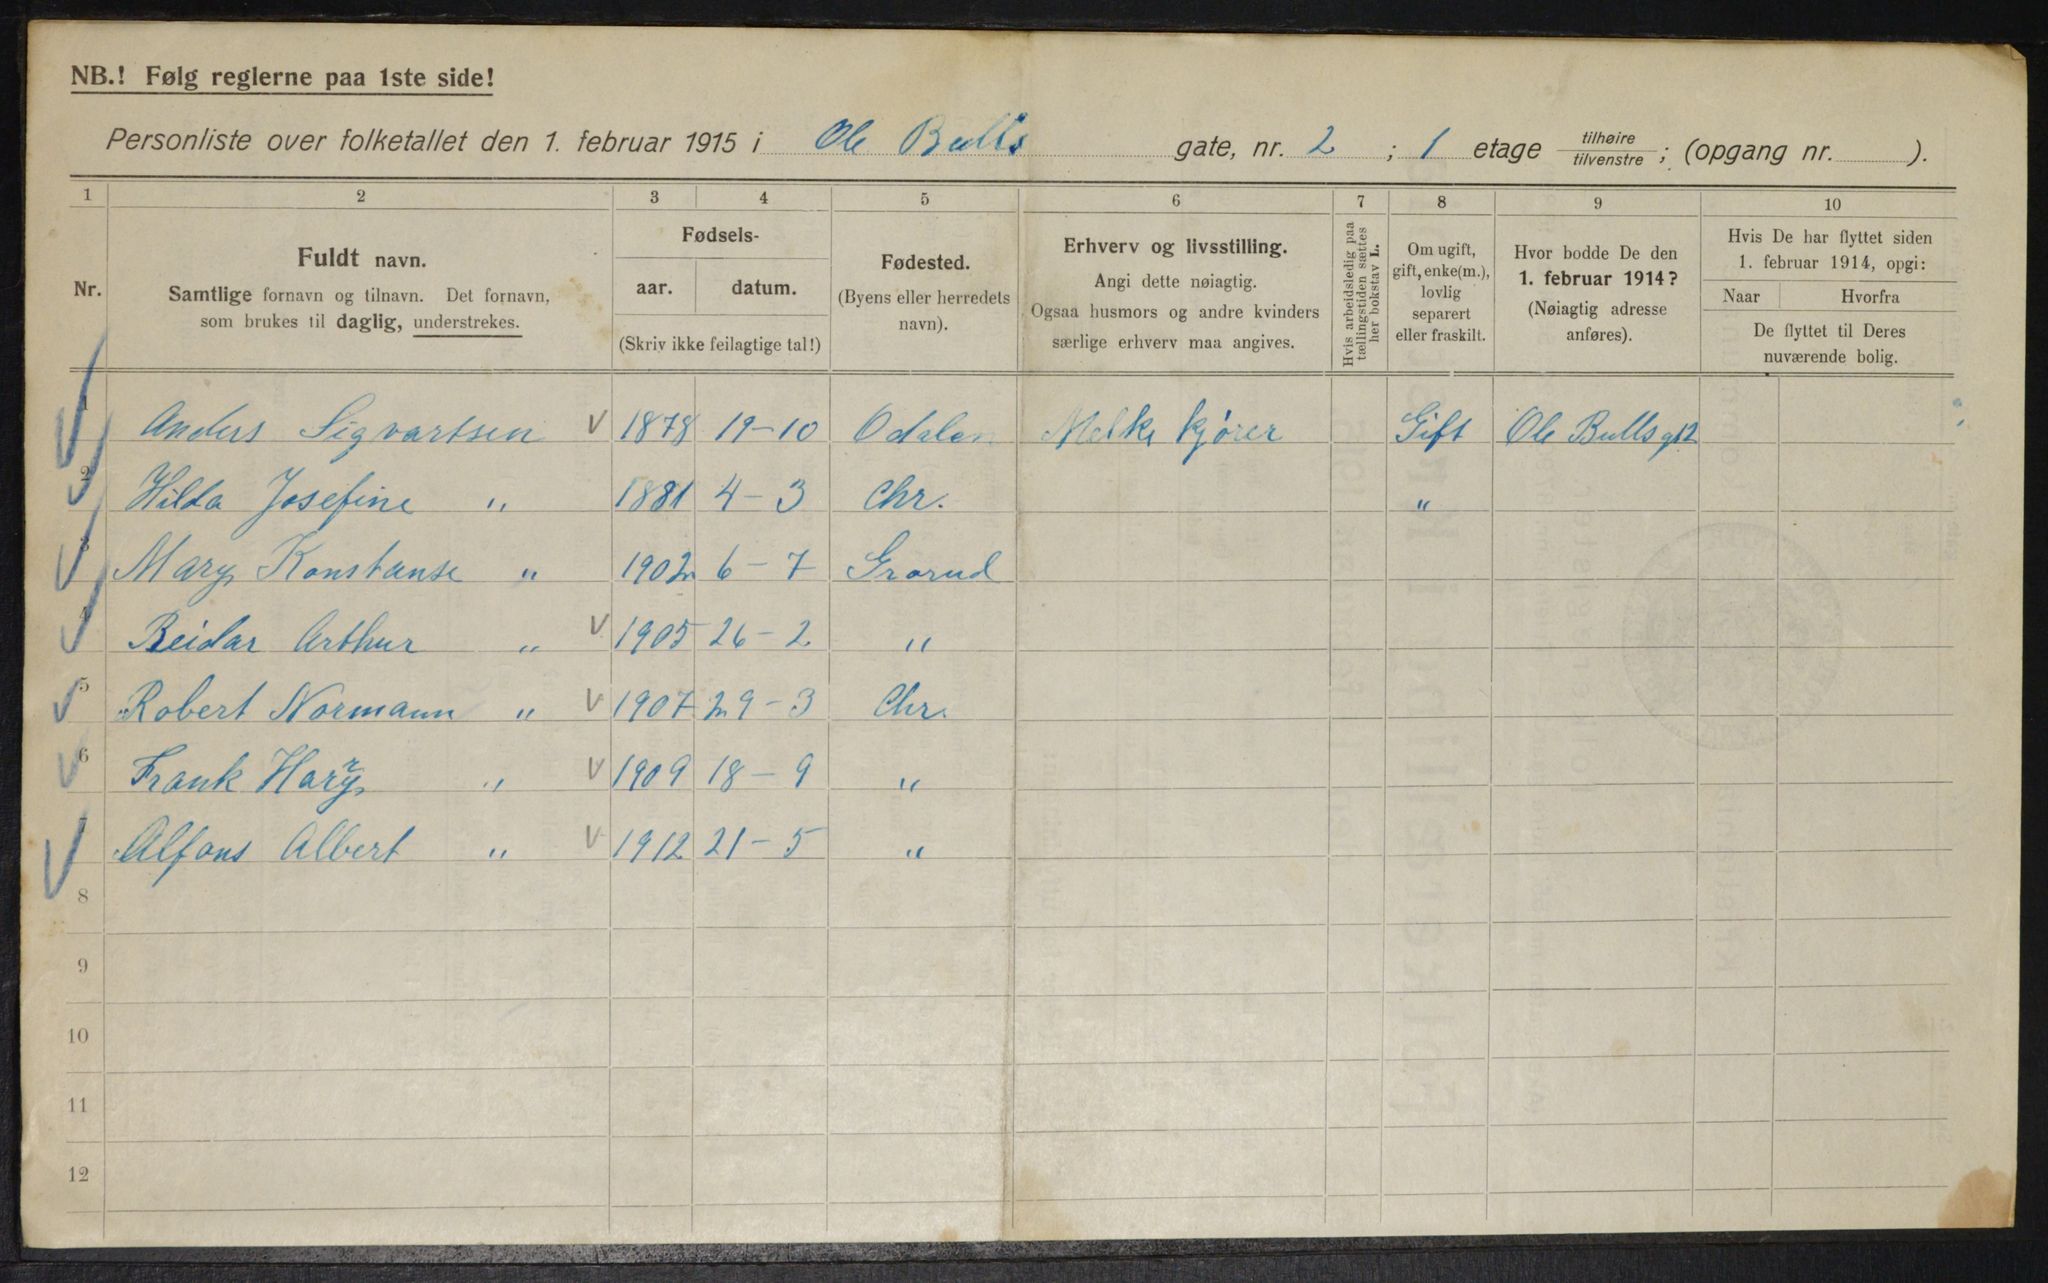 NB.! Følg reglerne paa 1ste side!
Personliste over folketallet den 1. februar 1915 i Ole Bulls gate, nr. 2 ; 1 etage tilhøire tilvenstre ; (opgang nr. ).
1 2 3 4 5 6 7 8 9 10
Nr.
Fuldt navn.
Samtlige fornavn og tilnavn. Det fornavn,
som brukes til daglig, understrekes.
Fødsels-
aar. datum.
(Skriv ikke feilagtige tal!)
Fødested.
(Byens eller herredets
navn).
Erhverv og livsstilling.
Angi dette nøiagtig.
Ogsaa husmors og andre kvinders
særlige erhverv maa angives.
Hvis arbeidsledig paa
tællingstiden sættes
her bokstav L.
Om ugift,
gift, enke(m.),
lovlig
separert
eller fraskilt.
Hvor bodde De den
1. februar 1914?
(Nøiagtig adresse
anføres).
Hvis De har flyttet siden
1. februar 1914, opgi:
Naar Hvorfra
De flyttet til Deres
nuværende bolig.
1 Anders Sigvartsen 1878 19-10 Odalen Melke kjører Gift Ole Bulls gt 2
2 Hilda Josefine " 1881 4-3 Chr. "
3 Mary Konstanse " 1902 6-7 Grorud
4 Reidar Arthur " 1905 26-2 "
5 Robert Normann " 1907 29-3 Chr.
6 Frank Harry " 1909 18-9 "
Alfons Albert " 1912 21-5 "
8
9
10
11
12